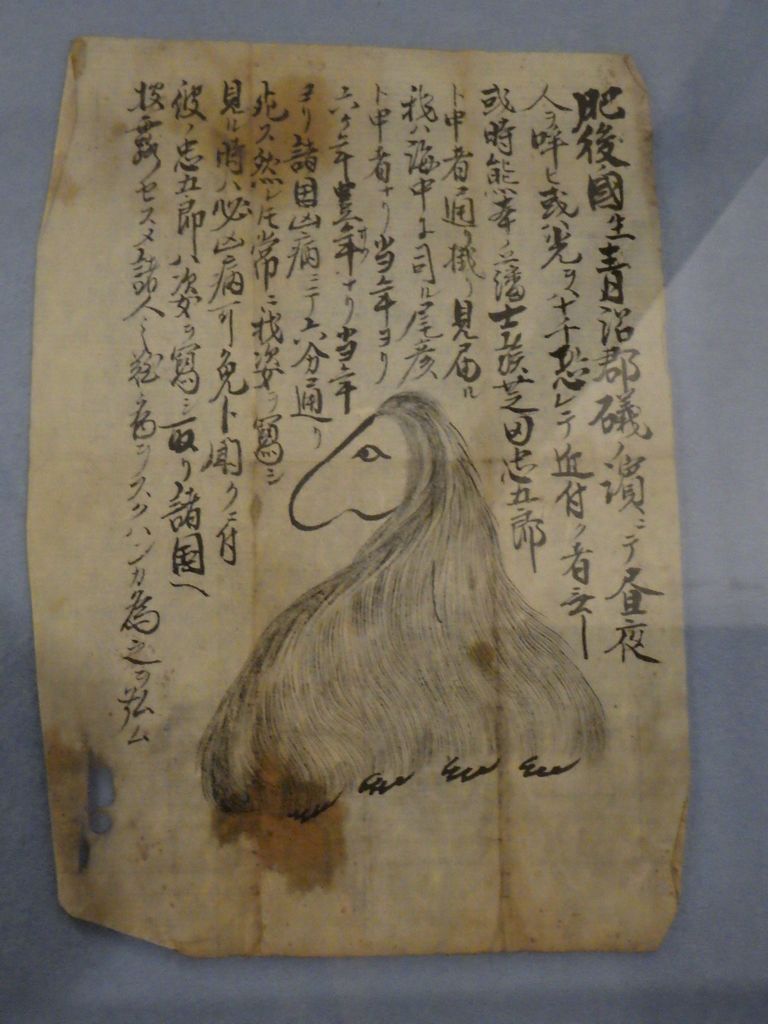 肥後ノ國生青沼郡磯ノ濱ニテ昼夜
人ヲ呼ヒ或ハ光ヲハナチ恐レテ近付ク者无シ
或時熊本ノ藩士芝田忠五郎
ト申者通リ掛リ見届ル
我ハ海中ヲ司ル尼彦
ト申者ナリ当年ヨリ
六ケ年豊年ナリ当年
ヨリ諸国凶病ニテ六分通リ
死ス然レ圧常ニ我姿ヲ寫シ
見ル時ハ必凶病可免ト聞クニ付
彼ノ忠五郎ハ姿ヲ寫シ取リ諸国ヘ
披露セスメ諸人之為ヲスクハンカ為之ヲ弘ム